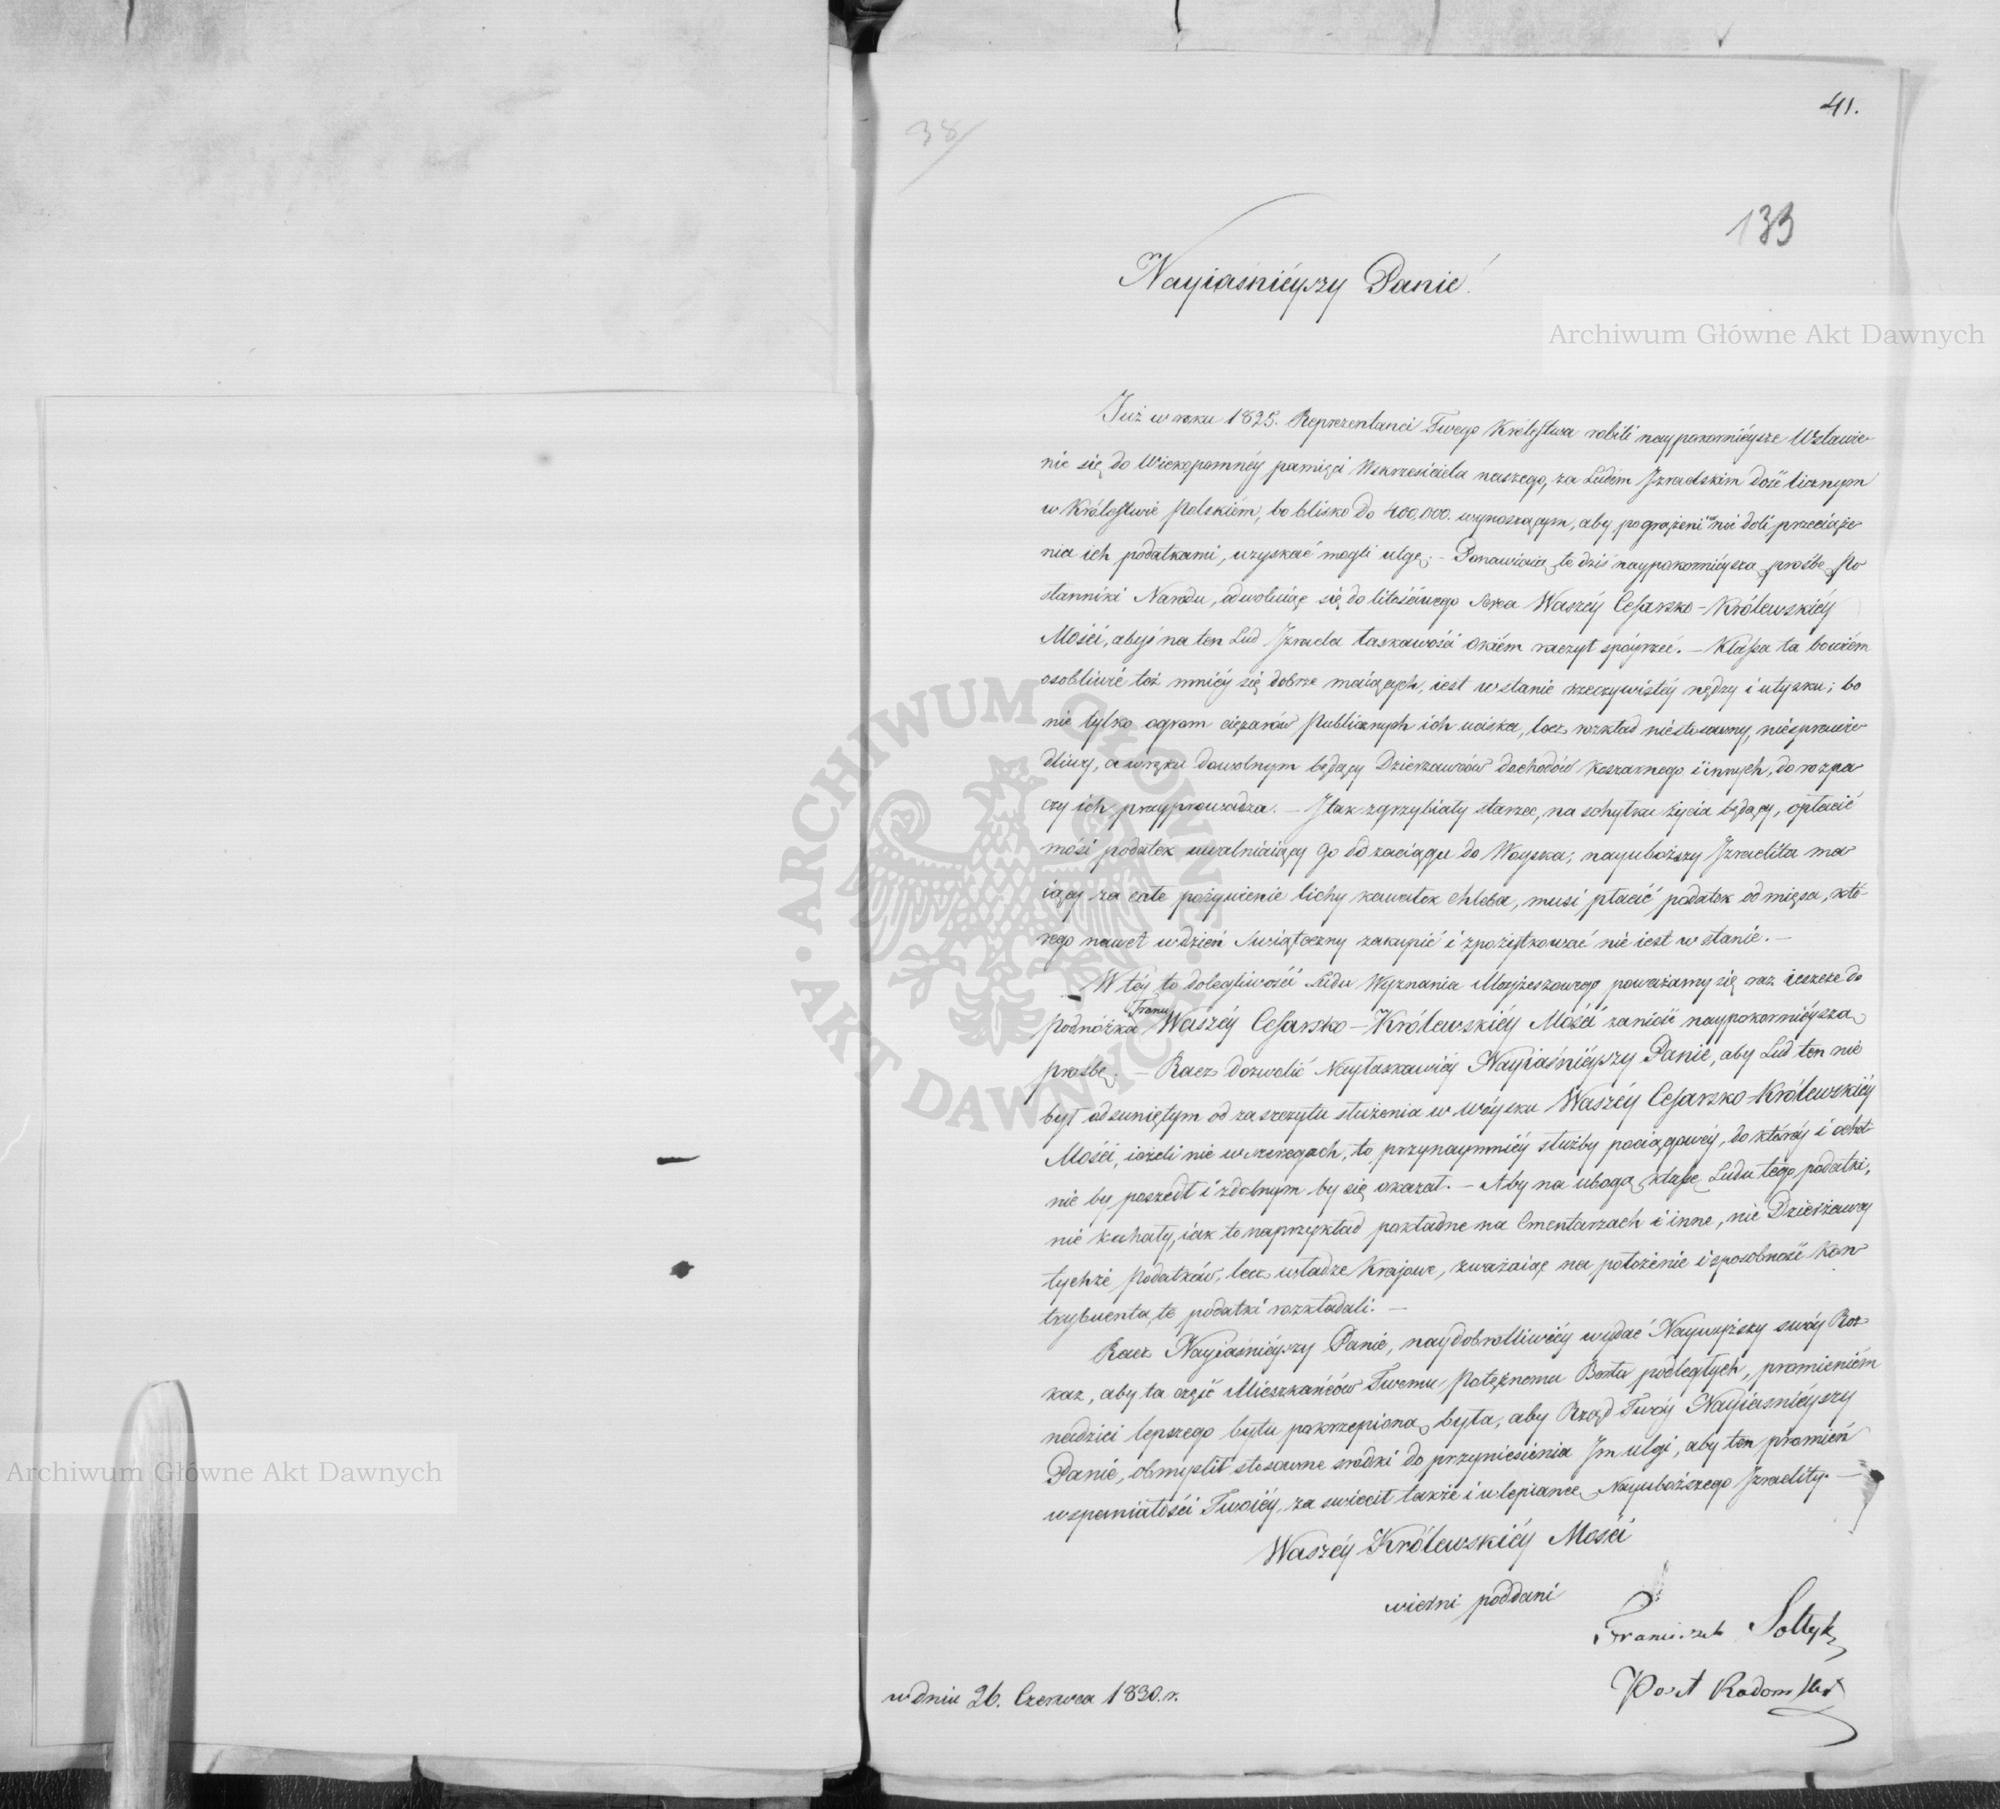 41.
38
133
Nayiaśnieyszy Panie!
Archiwum Główne Akt Dawnych
Już w roku 1825. Reprezentanci Twego Królestwa robili naypokornieysze Wstawie
nie się do Wiekopomnéy pamięci Wskrzesiciela naszego, za Ludem Izraelskim dość licznym
w Królestwie Polskiém, bo blisko do 400,000. wynoszącym, aby pogrążeni w niedoli przeciąże
nia ich podatkami, uzyskać mogli ulgę; - Ponawiaią te dziś naypokornieyszą prośbę Po
słanniki Narodu, odwołuiąc się do litościwego Serca Waszéy Cesarsko-Królewskiéy
Mości, abyś na ten Lud Izraela łaskawości okiém raczył spóyrzeć. - Klassa ta bowiém
osobliwie toż mniéy się dobrze maiących, iest w stanie rzeczywistéy nędzy i utysku; bo
nie tylko ogrom ciężarów Publicznych ich uciska, lecz rozkład niestosowny, niesprawie
dliwy, a w ręku dowolnym będący Dzierzawców dochodów koszernego i innych, do rozpa
czy ich przyprowadza. - I tak zgrzybiały starzec, na schyłku życia będący, opłacić
mósi podatek uwalniaiący go od zaciągu do Woyska; nayuboższy Izraelita ma
iący za całe pożywienie lichy kawałek Chleba, musi płacić podatek od mięsa, któ-
rego nawet w dzień Świąteczny zakupić i spożytkować nie iest w stanie. -
W téy to dolegliwości Ludu Wyznania Moyżeszowego poważamy się raz ieszcze do
Tronu
podnóżka Waszéy Cesarsko-Królewskiéy Mości zanieść naypokornieyszą
prośbę. - Racz dozwolić Nayłaskawiéy Nayiaśnieyszy Panie, aby Lud ten nie
był odsuniętym od zaszczytu służenia w Wóysku Waszéy Cesarsko-Królewskiéy
Mości, ieżeli nie w szeregach, to przynaymniéy służby pociągowéy, do któréy i ochot
nie by poszedł i zdolnym by się okazał. - Aby na ubogą klassę Ludu tego podatki,
nie kahały, iak to naprzykład pokładne na Cmentarzach i inne, nie Dzierżawcy
tychże Podatków, lecz władze Kraiowe, zważaiąc na położenie i sposobność Kon
trybuenta, te podatki rozkładali. -
Racz Nayiaśnieyszy Panie, naydobrotliwiéy wydać Naywyższy swóy Roz-
kaz, aby ta część Mieszkańców Twemu Potężnemu Berłu podległych, promieniém
nadziei lepszego bytu pokrzepioną była, aby Rząd Twóy Nayiaśnieyszy
Panie, obmyślił stosowne srodki do przyniesienia Im ulgi, aby ten promień
wspaniałości Twoiéy, za swiécił także i w lepiance Nayuboższego Izraelity. -
Waszéy Królewskiéy Mości
wierni poddani
Franciszek Sołtyk
Poseł Radomski
w dniu 26. Czerwca 1830. r.
Archiwum Główne Akt Dawnych
ARCHIWUM GŁÓWNE AKT DAWNYCH